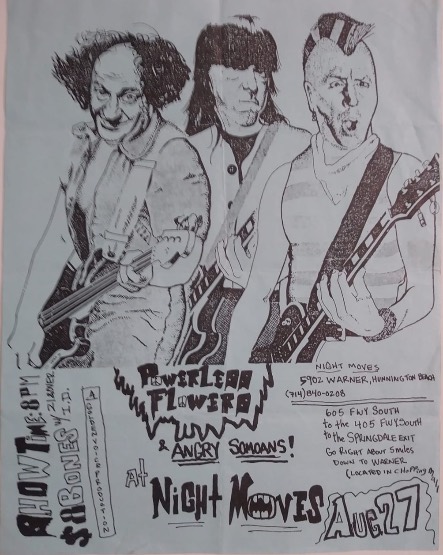 POWERLESS
FLOWERS
& ANGRY SOMOANS!
At NiGHT MOVES
NIGHT MOVES
5902 WARNER, HUNNINGTON BEACH
(714) 840-0208
605 FWY SOUTH
to the 405 FWY SOUTH
to the SPRINGDALE EXIT
Go RIGHT About 5 miles
DOWN to WARNER
(LOCATED IN
AUG. 27
SHOWTIME: 8 PM
w/ I.D.